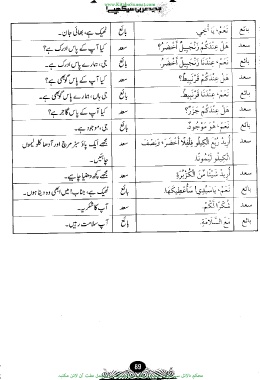 بائع نَعَمْ، يَا أَخِي. بائع ٹھیک ہے، بھائی جان۔
سعد هَلْ عِنْدَكُمْ زَنْجَبِيلٌ أَخْضَرُ؟ سعد کیا آپ کے پاس ادرک ہے؟
بائع نَعَمْ، عِنْدَنَا زَنْجَبِيلٌ أَخْضَرُ بائع جی، ہمارے پاس ادرک ہے۔
سعد هَلْ عِنْدَكُمْ قَرْنَبِيطٌ؟ سعد کیا آپ کے پاس گوبھی ہے؟
بائع نَعَمْ، عِنْدَنَا قَرْنَبِيطٌ. بائع جی ہاں، ہمارے پاس گوبھی ہے۔
سعد هَلْ عِنْدَكُمْ جَزَرٌ؟ سعد کیا آپ کے پاس گاجر ہے؟
بائع نَعَمْ، هُوَ مَوْجُودٌ. بائع جی، موجود ہے۔
سعد أُرِيدُ رُبْعَ الْكِيلُو فُلْفُلًا أَخْضَرَ، وَنِصْفَ سعد مجھے ایک پاؤ سبز مرچ اور آدھا کلو لیموں
الْكِيلُو لَيْمُونًا. چاہئیں۔
سعد أُرِيدُ شَيْئًا مِنَ الْكُزْبَرَةِ سعد مجھے کچھ دھنیا چاہیے۔
بائع نَعَمْ، يَا سَيِّدِي! سَأُعْطِيكَهَا. بائع ٹھیک ہے، جناب! میں ابھی وہ دیتا ہوں۔
سعد شُكْرًا لَكُمْ سعد آپ کا شکریہ۔
بائع مَعَ السَّلَامَةِ. بائع آپ سلامت رہیں۔
69